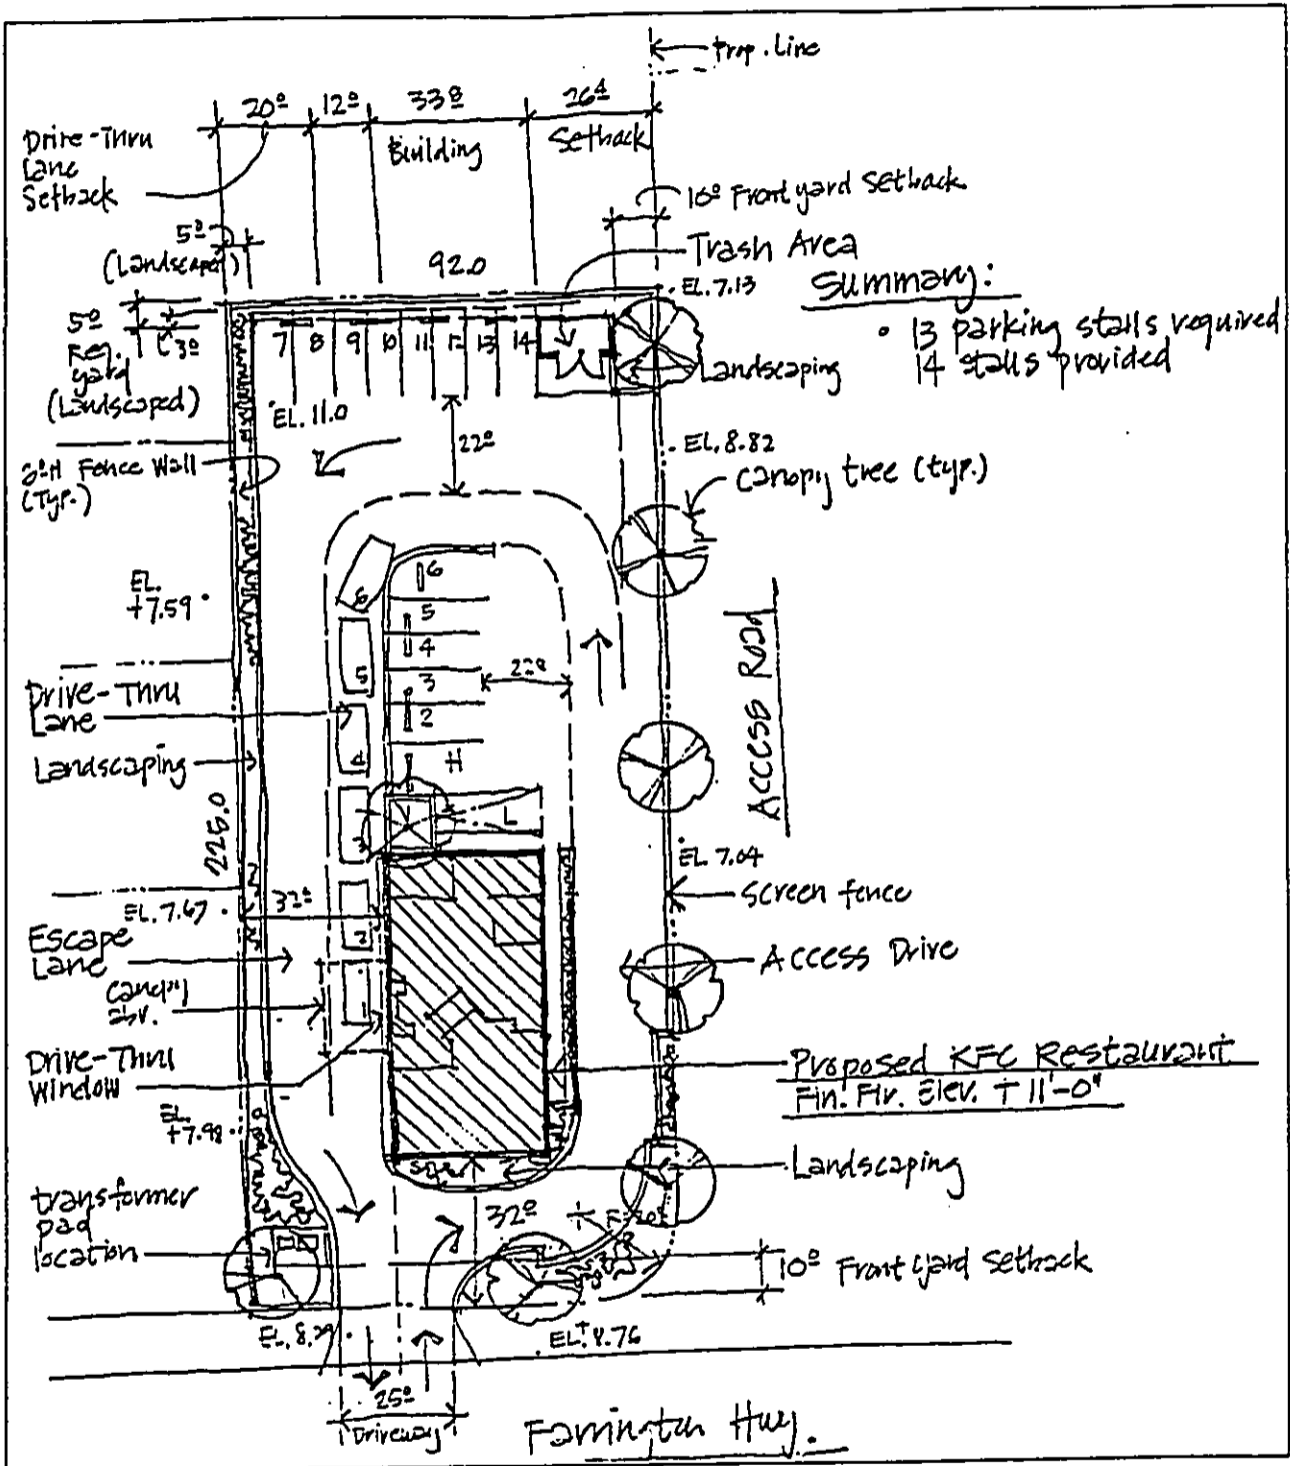 Prop. Line
20º 12º 33⁸ 26⁴
Drive-Thru
Lane
Setback
Building
Setback
10º Front yard Setback
5º
(Landscaped)
92.0
Trash Area
EL. 7.13
Summary:
• 13 parking stalls required
14 stalls provided
5º
Req.
yard
(Landscaped)
3º
7 8 9 10 11 12 13 14
Landscaping
EL. 11.0
22º
EL. 8.82
Fence Wall
(Typ.)
Canopy tree (typ.)
6
5
4
3
2
H
L
6
5
4
3
2
EL.
+7.59
22º
Access Road
Drive-Thru
Lane
Landscaping
225.0
EL 7.04
Screen fence
EL. 7.67
32º
Escape
Lane
Access Drive
abv.
Drive-Thru
Window
Proposed KFC Restaurant
Fin. Flr. Elev. + 11'-0"
EL.
+7.98
Landscaping
transformer
pad
location
32º
10º Front yard Setback
EL. 8.76
25º
Driveway
Farrington Hwy.